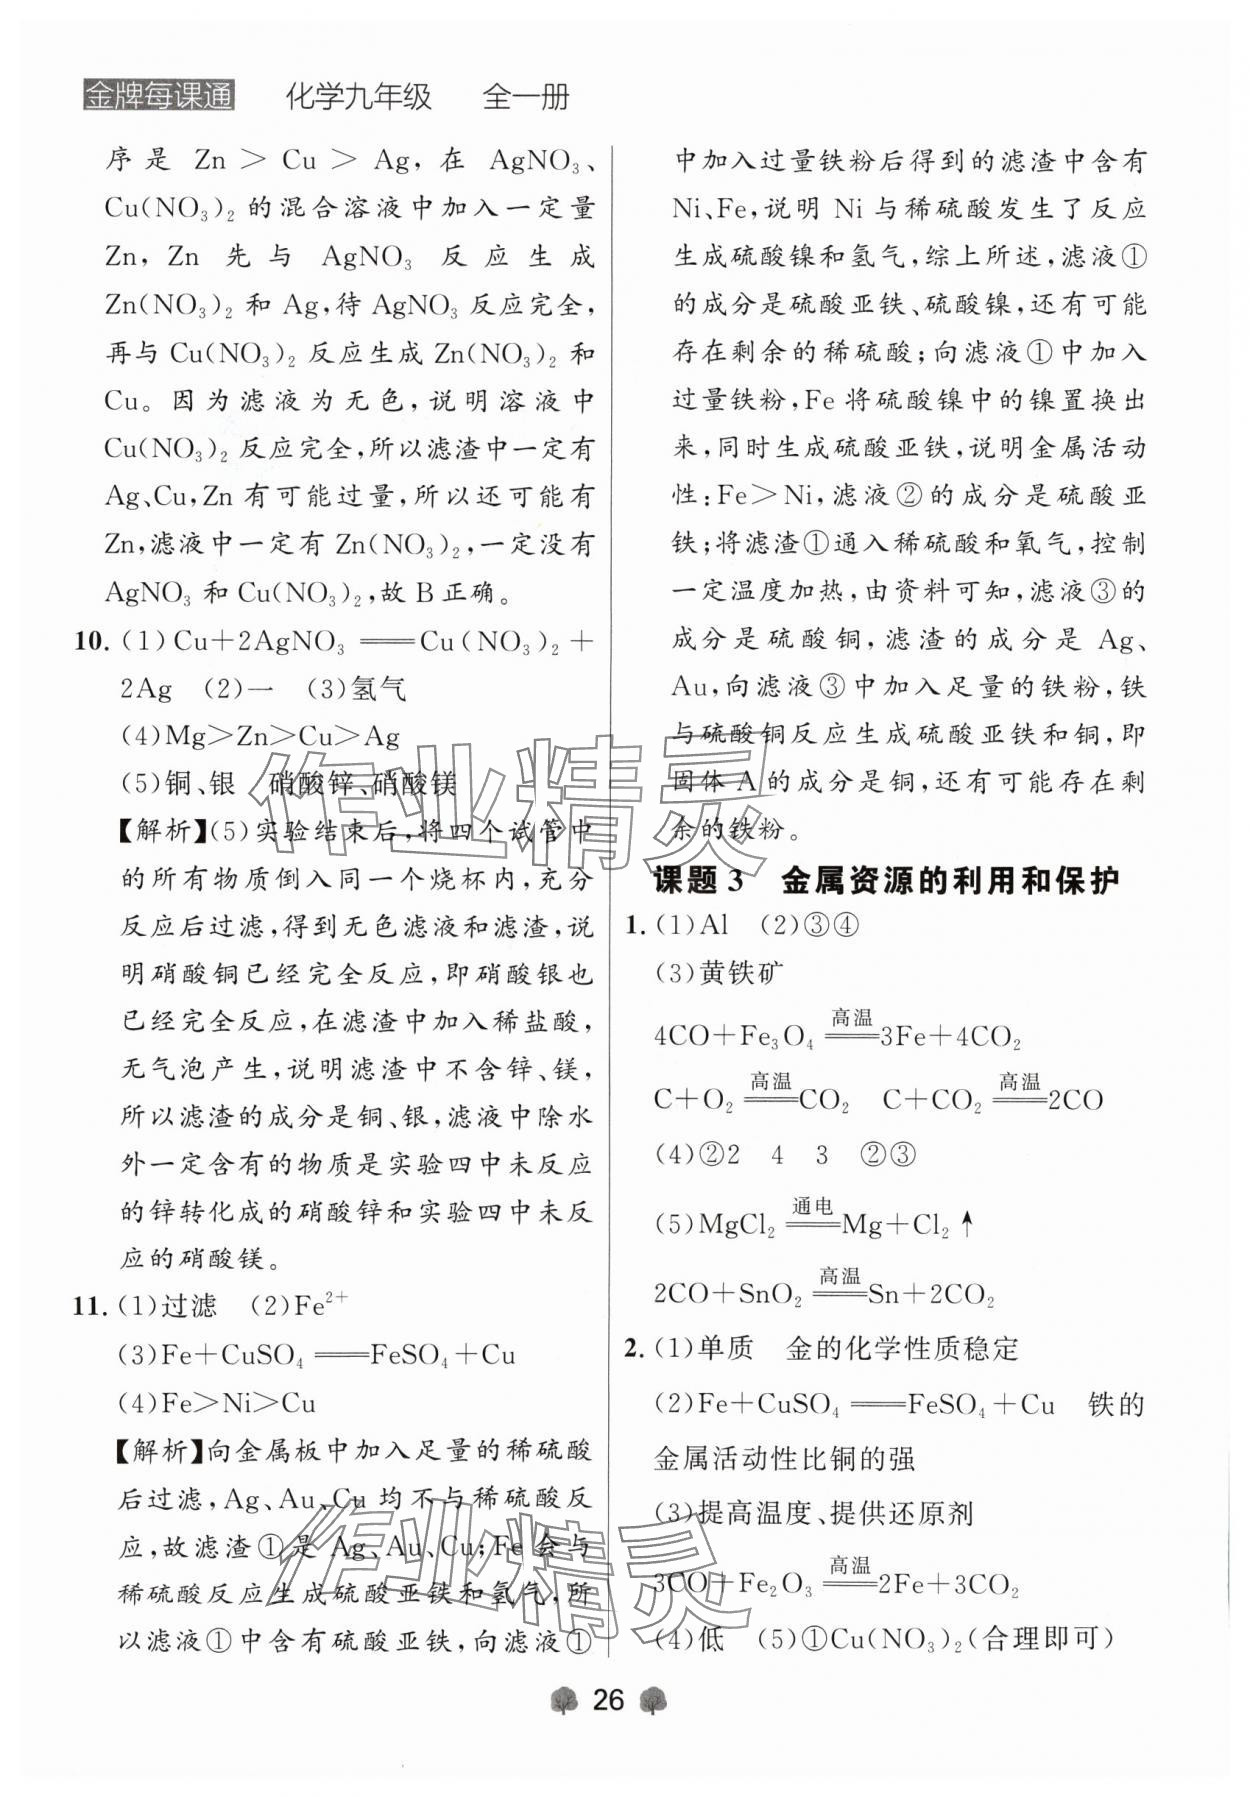 金牌每课通 化学九年级 全一册
序是 Zn＞Cu＞Ag，在 AgNO₃、
Cu(NO₃)₂的混合溶液中加入一定量
Zn，Zn 先与 AgNO₃ 反应生成
Zn(NO₃)₂和 Ag，待 AgNO₃反应完全，
再与 Cu(NO₃)₂反应生成 Zn(NO₃)₂和
Cu。因为滤液为无色，说明溶液中
Cu(NO₃)₂反应完全，所以滤渣中一定有
Ag、Cu，Zn 有可能过量，所以还可能有
Zn，滤液中一定有 Zn(NO₃)₂，一定没有
AgNO₃和 Cu(NO₃)₂，故 B 正确。
10. (1)Cu＋2AgNO₃══Cu(NO₃)₂＋
2Ag (2)一 (3)氢气
(4)Mg＞Zn＞Cu＞Ag
(5)铜、银 硝酸锌、硝酸镁
【解析】(5)实验结束后，将四个试管中
的所有物质倒入同一个烧杯内，充分
反应后过滤，得到无色滤液和滤渣，说
明硝酸铜已经完全反应，即硝酸银也
已经完全反应，在滤渣中加入稀盐酸，
无气泡产生，说明滤渣中不含锌、镁，
所以滤渣的成分是铜、银，滤液中除水
外一定含有的物质是实验四中未反应
的锌转化成的硝酸锌和实验四中未反
应的硝酸镁。
11. (1)过滤 (2)Fe²⁺
(3)Fe＋CuSO₄══FeSO₄＋Cu
(4)Fe＞Ni＞Cu
【解析】向金属板中加入足量的稀硫酸
后过滤，Ag、Au、Cu 均不与稀硫酸反
应，故滤渣①是 Ag、Au、Cu；Fe 会与
稀硫酸反应生成硫酸亚铁和氢气，所
以滤液①中含有硫酸亚铁，向滤液①
中加入过量铁粉后得到的滤渣中含有
Ni、Fe，说明 Ni 与稀硫酸发生了反应
生成硫酸镍和氢气，综上所述，滤液①
的成分是硫酸亚铁、硫酸镍，还有可能
存在剩余的稀硫酸；向滤液①中加入
过量铁粉，Fe 将硫酸镍中的镍置换出
来，同时生成硫酸亚铁，说明金属活动
性：Fe＞Ni，滤液②的成分是硫酸亚
铁；将滤渣①通入稀硫酸和氧气，控制
一定温度加热，由资料可知，滤液③的
成分是硫酸铜，滤渣的成分是 Ag、
Au，向滤液③中加入足量的铁粉，铁
与硫酸铜反应生成硫酸亚铁和铜，即
固体 A 的成分是铜，还有可能存在剩
余的铁粉。
课题 3 金属资源的利用和保护
1. (1)Al (2)③④
(3)黄铁矿
4CO＋Fe₃O₄ 高温══ 3Fe＋4CO₂
C＋O₂ 高温══ CO₂ C＋CO₂ 高温══ 2CO
(4)②2 4 3 ②③
(5)MgCl₂ 通电══ Mg＋Cl₂↑
2CO＋SnO₂ 高温══ Sn＋2CO₂
2. (1)单质 金的化学性质稳定
(2)Fe＋CuSO₄══FeSO₄＋Cu 铁的
金属活动性比铜的强
(3)提高温度、提供还原剂
3CO＋Fe₂O₃ 高温══ 2Fe＋3CO₂
(4)低 (5)①Cu(NO₃)₂(合理即可)
26
作业精灵
作业精灵